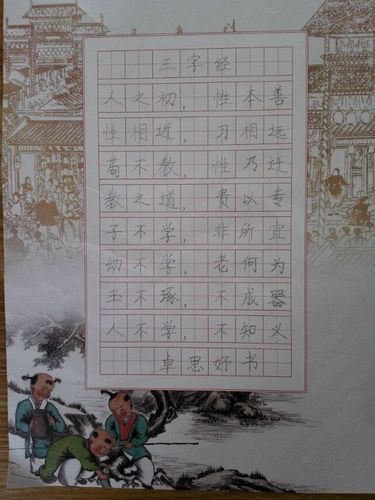 三字经
人之初，性本善
性相近，习相远
苟不教，性乃迁
教之道，贵以专
子不学，非所宜
幼不学，老何为
玉不琢，不成器
人不学，不知义
卓思妤书